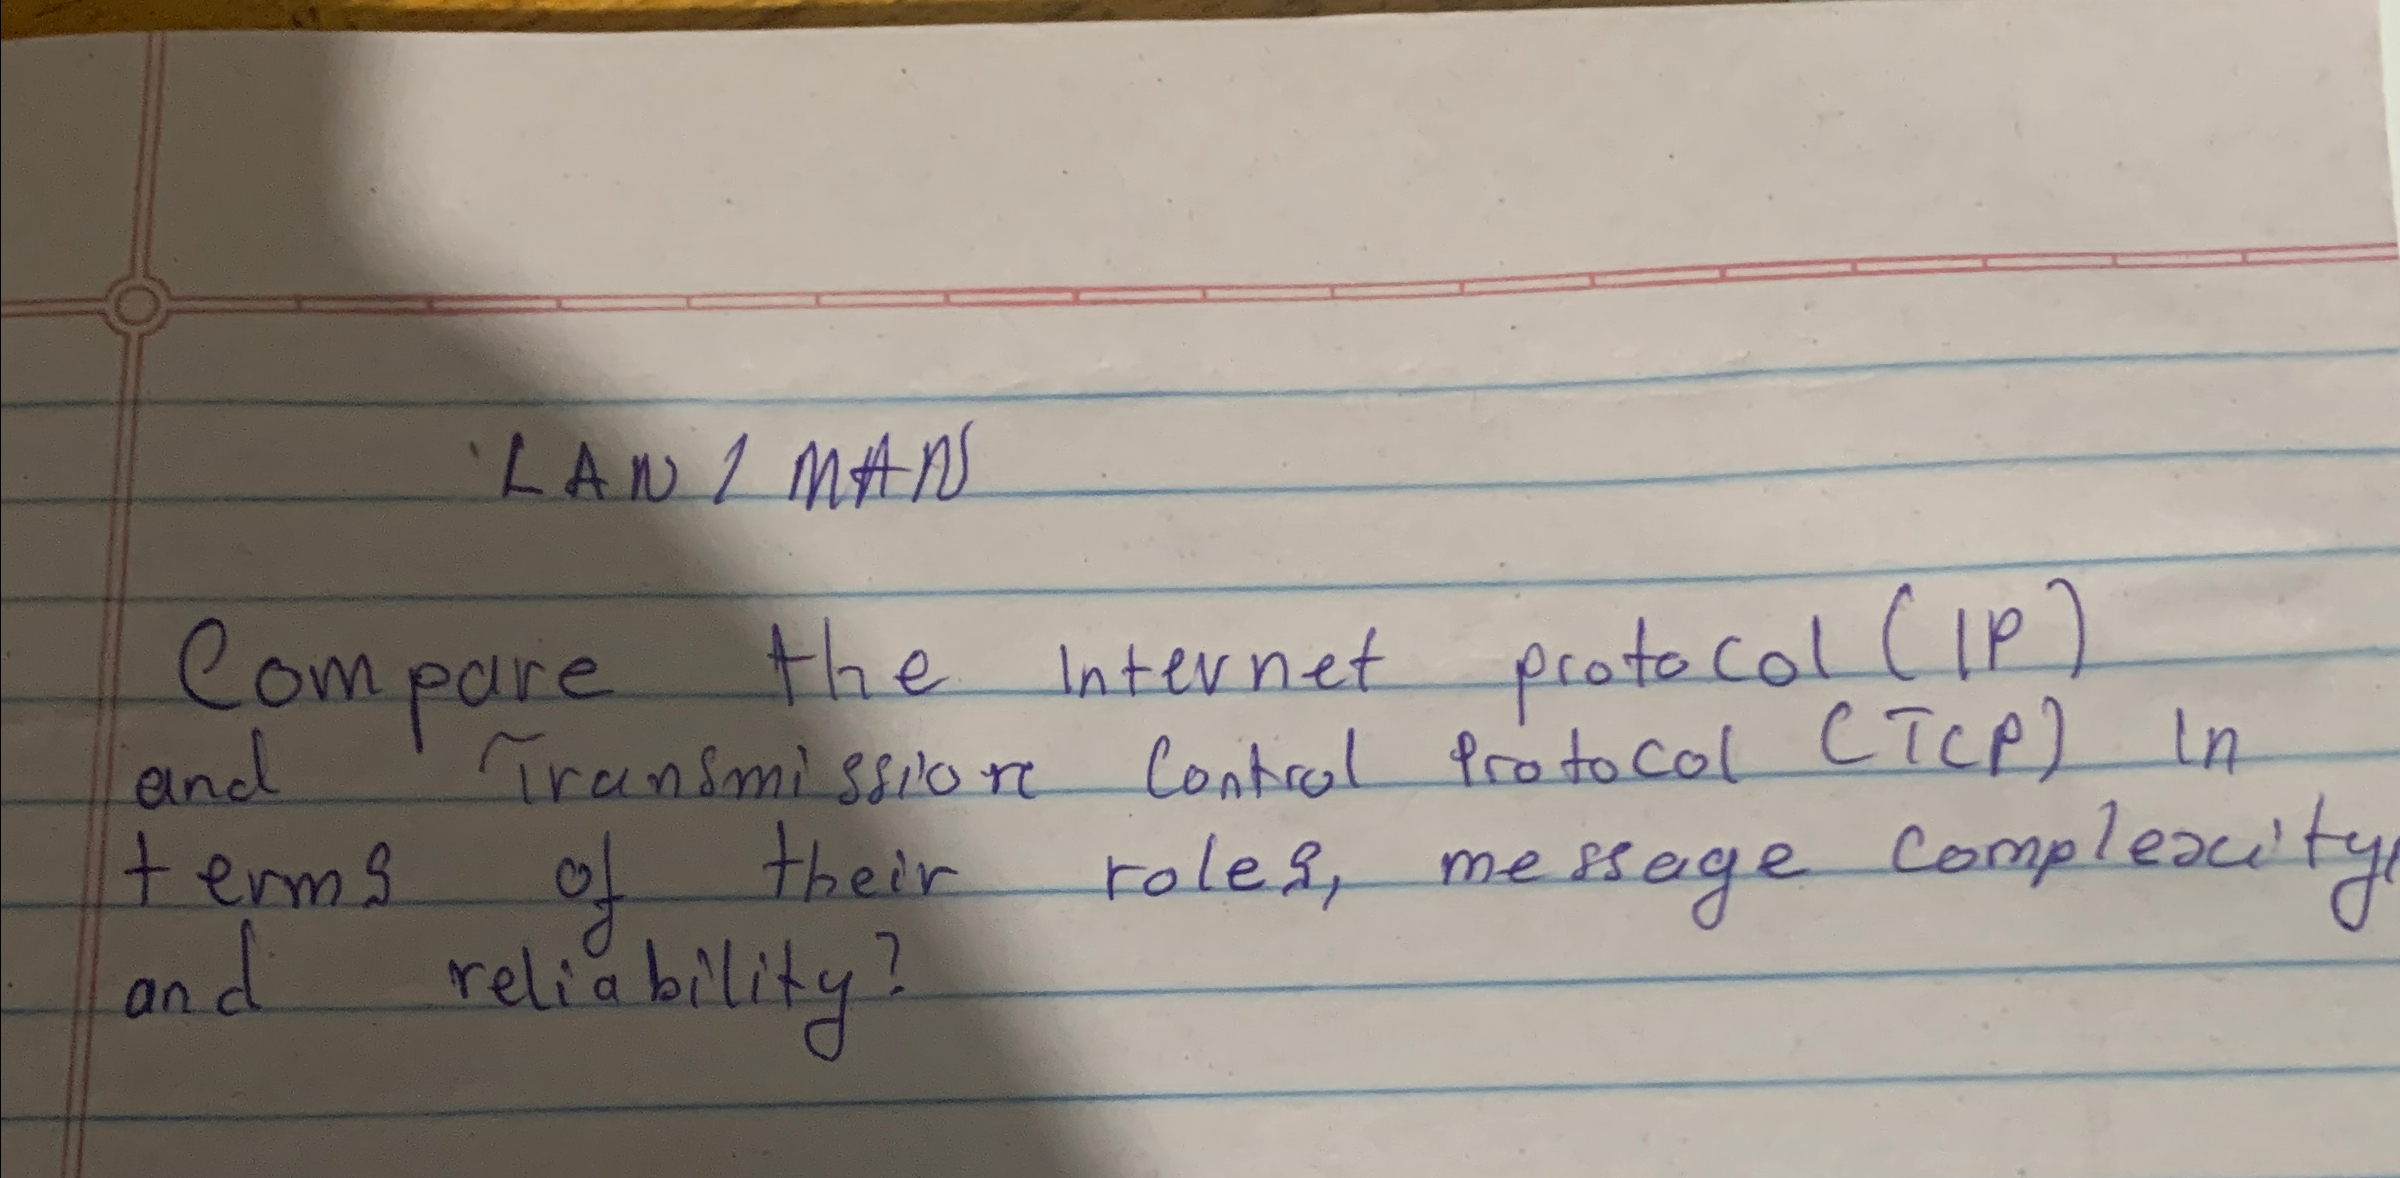 LAN / MAN
Compare the Internet protocol (IP)
and Transmission Control Protocol (TCP) In
terms of their roles, message complexity,
and reliability?